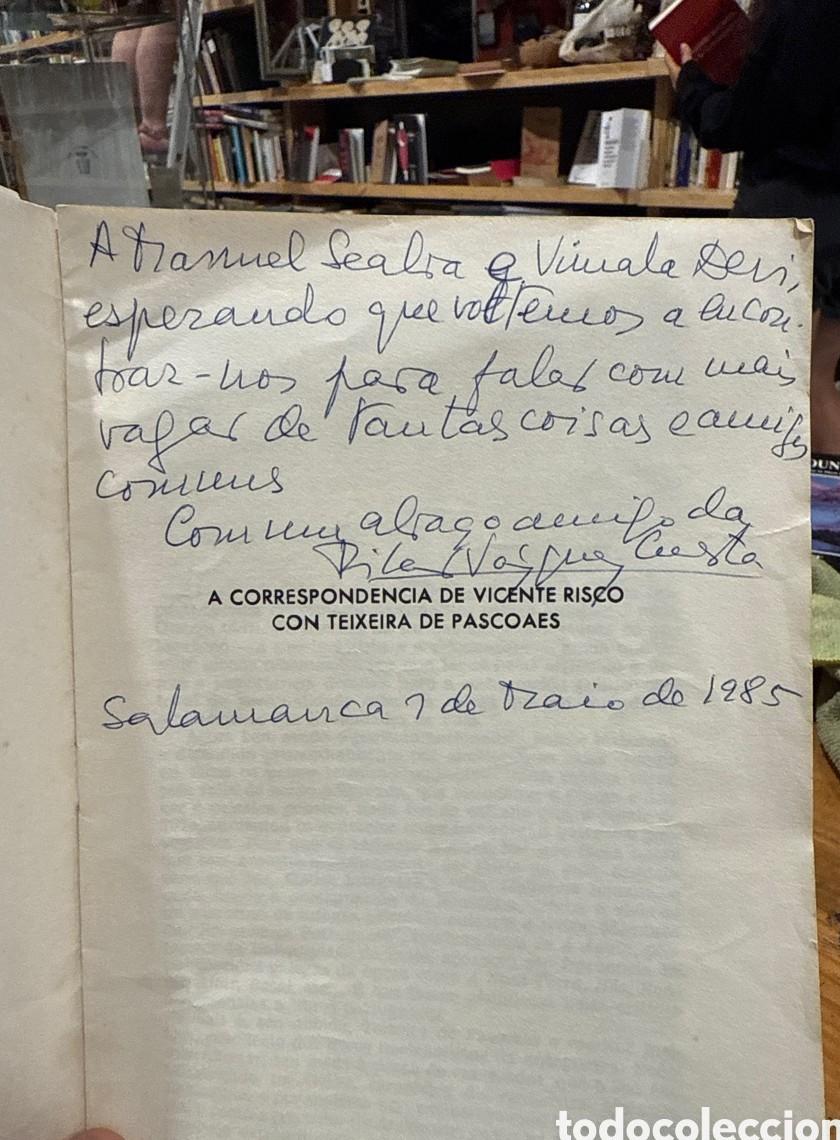 A Manuel Seabra e Vimala Devi,
esperando que voltemos a encon-
trar-nos para falar com mais
vagar de tantas coisas e amigos
comuns
Com um abraço amigo da
Pilar Vázquez Cuesta
A CORRESPONDENCIA DE VICENTE RISCO
CON TEIXEIRA DE PASCOAES
Salamanca 7 de Maio de 1985
todocoleccion